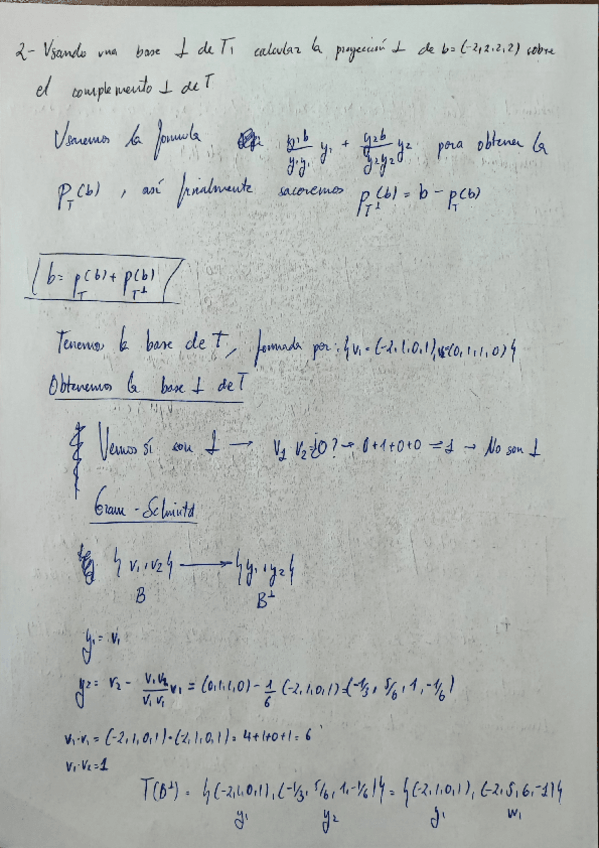 2- Usando una base ⊥ de T, calcular la proyección ⊥ de b=(-2,2,2,2) sobre
el complemento ⊥ de T
Usaremos la formula y1b/y1y1 y1 + y2b/y2y2 y2 para obtener la
P_T(b), así finalmente sacaremos P_T⊥(b) = b - P_T(b)
b = P_T(b) + P_T⊥(b)
Tenemos la base de T, formada por: {v1=(-2,1,0,1), v2=(0,1,1,0)}
Obtenemos la base ⊥ de T
Vemos si son ⊥ → v1 v2=¿0? → 0+1+0+0=1 → No son ⊥
Gram-Schmidt
{v1,v2} → {y1,y2}
B B⊥
y1 = v1
y2 = v2 - v1v2/v1v1 v1 = (0,1,1,0) - 1/6 (-2,1,0,1) = (-1/3, 5/6, 1, -1/6)
v1·v1 = (-2,1,0,1)·(-2,1,0,1) = 4+1+0+1 = 6
v1·v2=1
T(B⊥) = {(-2,1,0,1), (-1/3, 5/6, 1, -1/6)} = {(-2,1,0,1), (-2,5,6,-1)}
y1 y2 y1 w1